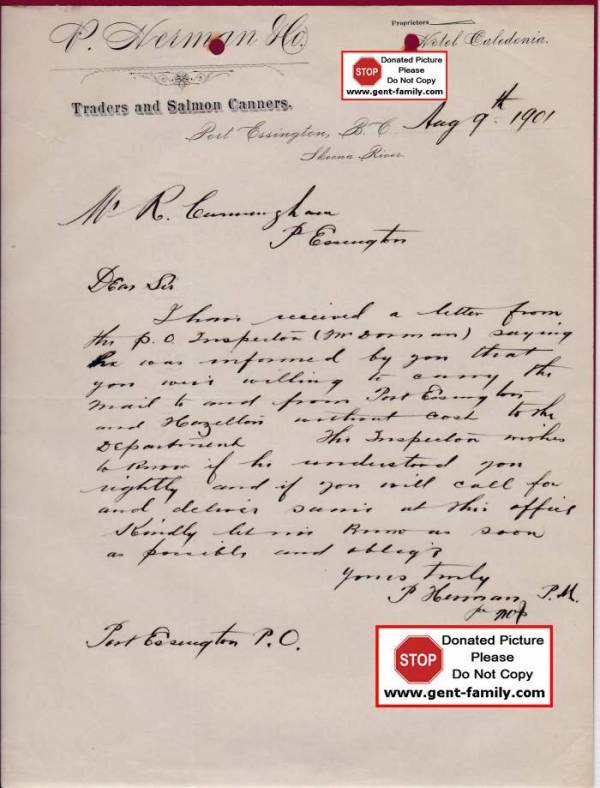 P. Herman & Co.
Proprietors
Hotel Caledonia.
STOP
Donated Picture
Please
Do Not Copy
www.gent-family.com
Traders and Salmon Canners.
Port Essington, B.C. Aug 9th 1901
Skeena River
Mr R. Cunningham
P Essington
Dear Sir
I have received a letter from
the P.O. Inspector (Mr Dorman) saying
he was informed by you that
you were willing to carry the
mail to and from Port Essington
and Hazelton without cost to the
Department The Inspector wishes
to know if he understood you
rightly and if you will call for
and deliver same at this office
Kindly let me know as soon
as possible and oblige
Yours truly
P Herman P.M.
Port Essington P.O.
STOP
Donated Picture
Please
Do Not Copy
www.gent-family.com